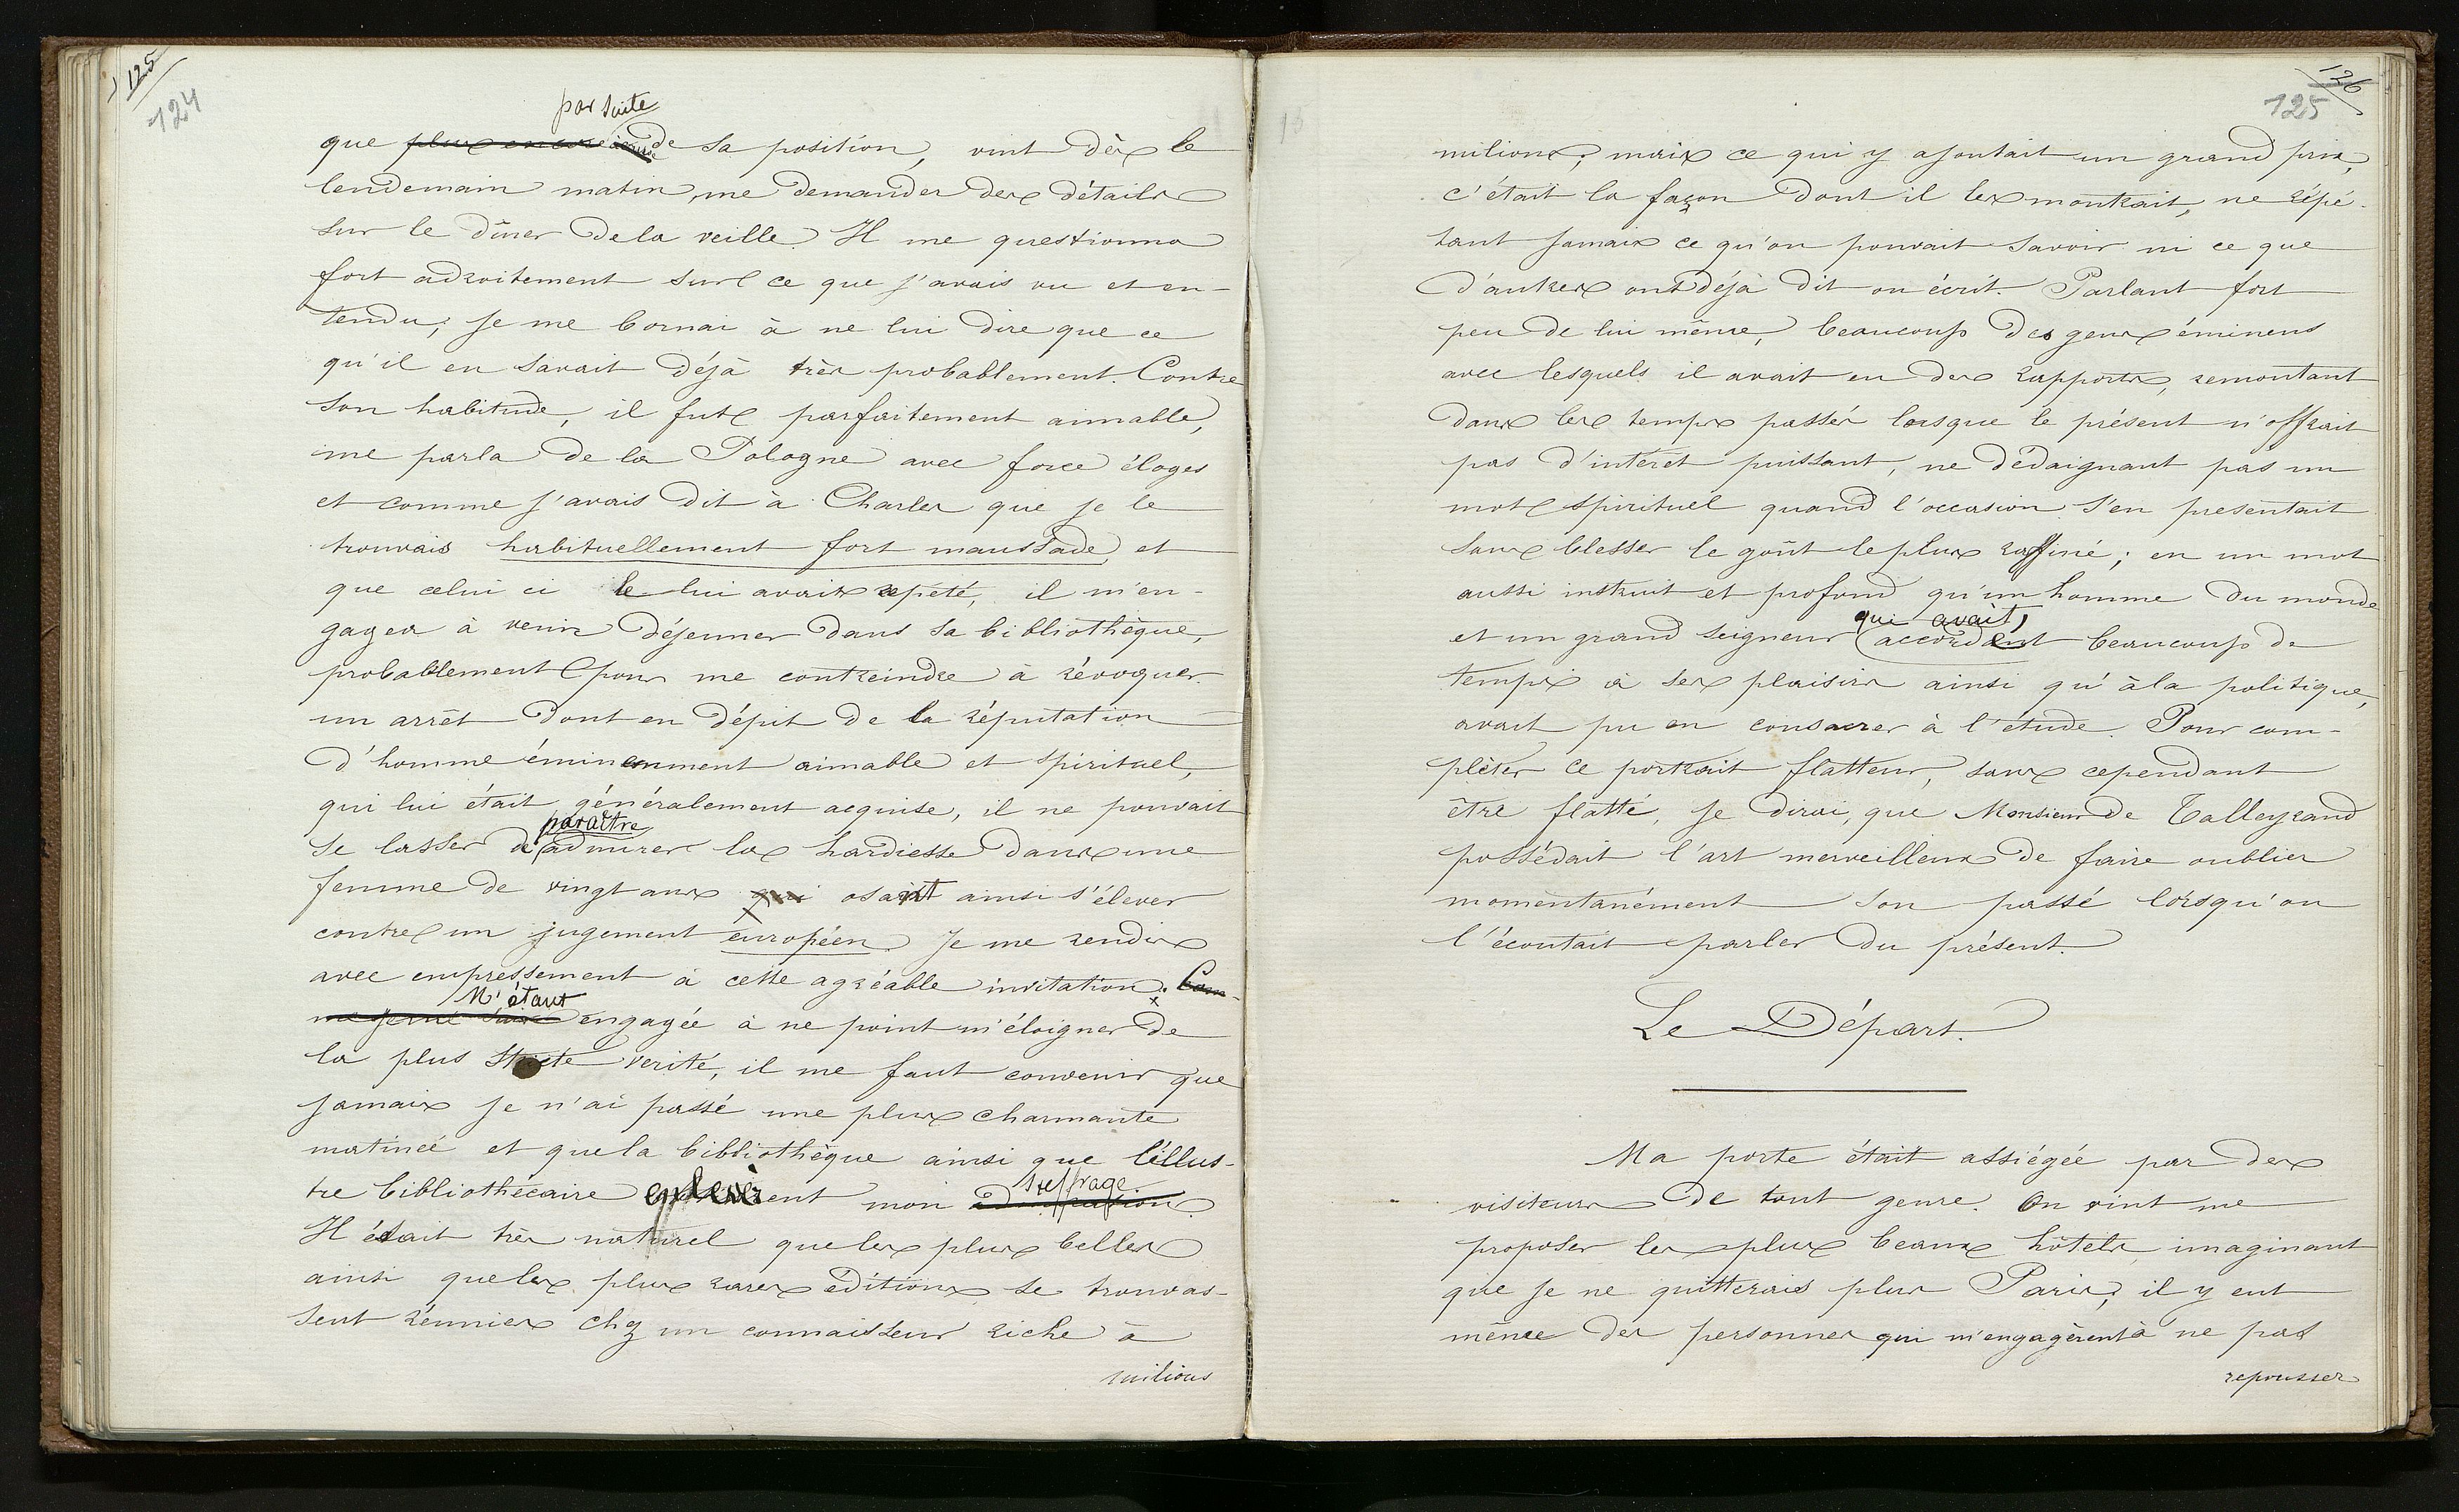 125
124
par suite
que plus encore à cause de sa position, vint dès le
lendemain matin, me demander des détails
sur le dîner de la veille. Il me questionna
fort adroitement sur ce que j'avais vu et en-
tendu; je me bornai à ne lui dire que ce
qu'il en savait déjà très probablement. Contre
son habitude, il fut parfaitement aimable,
me parla de la Pologne avec force éloges
et comme j'avais dit à Charles que je le
trouvais habituellement fort maussade et
que celui ci le lui avait repété, il m'en-
gagea à venir déjeuner dans sa bibliothèque,
probablement pour me contreindre à révoquer
un arrêt dont en dépit de la réputation
d'homme éminemment aimable et spirituel,
qui lui était généralement acquise, il ne pouvait
paraître
se lasser de admirer la hardiesse dans une
femme de vingt ans qui osait ainsi s'élever
contre un jugement européen. Je me rendis
avec empressement à cette agréable invitation. Com-
M'étant
me je me suis engagée à ne point m'éloigner de
la plus stricte verité, il me faut convenir que
jamais je n'ai passé une plus charmante
matineé et que la bibliothèque ainsi que l'illus-
suffrage.
tre bibliothécaire enlevèrent mon
Il était très naturel que les plus belles
ainsi que les plus rares éditions se trouvas-
sent réunies chez un connaisseur riche à
milions
126
125
milions; mais ce qui y ajoutait un grand prix,
c'était la façon dont il les montrait, ne répé-
tant jamais ce qu'on pouvait savoir ni ce que
d'autres ont déjà dit ou écrit. Parlant fort
peu de lui même, beaucoup des gens éminens
avec lesquels il avait eu des rapports, remontant
dans les temps passés lorsque le présent n'offrait
pas d'intéret puissant, ne dédaignant pas un
mot spirituel quand l'occasion s'en presentait
sans blesser le goût le plus raffiné; en un mot
aussi instruit et profond qu'un homme du monde
qui avait,
et un grand seigneur accordant beaucoup de
temps à ses plaisirs ainsi qu'à la politique,
avait pu en consacrer à l'etude. Pour com-
plèter ce portrait flatteur, sans cependant
être flatté, je dirai, que Monsieur de Talleyrand
possédait l'art merveilleux de faire oublier
momentanément son passé lorsqu'on
l'écoutait parler du présent.
Le Départ.
Ma porte était assiégée par des
visiteurs de tout genre. On vint me
proposer les plus beaux hôtels imaginant
que je ne quitterais plus Paris; il y eut
même des personnes qui m'engagèrent à ne pas
repousser